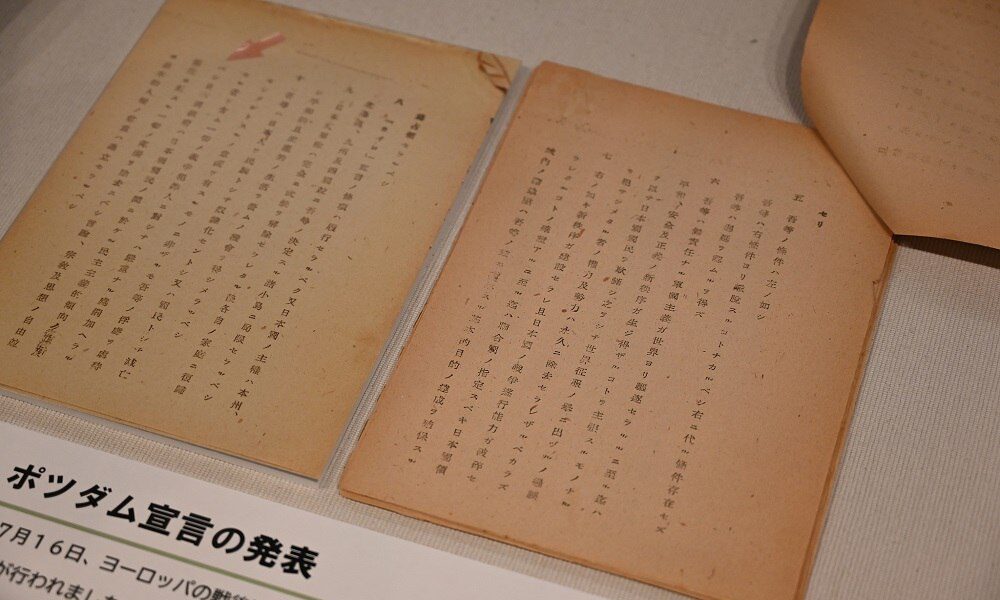 セリ
五 吾等ノ條件ハ左ノ如シ
吾等ハ右條件ヨリ離脱スルコトナカルベシ右ニ代ル條件存在セズ
吾等ハ遅延ヲ認ムルヲ得ズ
六 吾等ハ無責任ナル軍國主義ガ世界ヨリ驅逐セラルルニ至ル迄ハ
平和、安全及正義ノ新秩序ガ生ジ得ザルコトヲ主張スルモノナル
ヲ以テ日本國國民ヲ欺瞞シ之ヲシテ世界征服ノ擧ニ出ヅルノ過誤
ヲ犯サシメタル者ノ權力及勢力ハ永久ニ除去セラレザルベカラズ
七 右ノ如キ新秩序ガ建設セラレ且日本國ノ戰爭遂行能力ガ破碎セ
ラレタルコトノ確證アルニ至ル迄ハ聯合國ノ指定スベキ日本國領
域内ノ諸地點ハ吾等ノ茲ニ指示スル基本的目的ノ達成ヲ確保スル
爲占領セラルベシ
八 「カイロ」宣言ノ條項ハ履行セラルベク又日本國ノ主權ハ本州、
北海道、九州及四國竝ニ吾等ノ決定スル諸小島ニ局限セラルベシ
九 日本國軍隊ハ完全ニ武裝ヲ解除セラレタル後各自ノ家庭ニ復歸
シ平和的且生產的ノ生活ヲ營ムノ機會ヲ得シメラルベシ
十 吾等ハ日本人ヲ民族トシテ奴隸化セントシ又ハ國民トシテ滅亡
セシメントスルノ意圖ヲ有スルモノニ非ザルモ吾等ノ俘虜ヲ虐待
セル者ヲ含ム一切ノ戰爭犯罪人ニ對シテハ嚴重ナル處罰加ヘラル
ベシ日本國政府ハ日本國國民ノ間ニ於ケル民主主義的傾向ノ復活
強化ニ對スル一切ノ障礙ヲ除去スベシ言論、宗敎及思想ノ自由竝
ニ基本的人權ノ尊重ハ確立セラルベシ
ポツダム宣言の発表
7月16日、ヨーロッパの戦後
が行われました